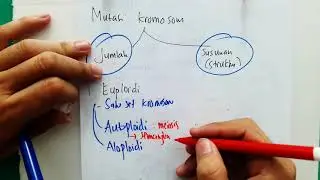 Mutasi kromosom
Jumlah
Susunan
(struktur)
Euploidi
- Satu set kromosom
Autoploidi meiosis
Aloploidi